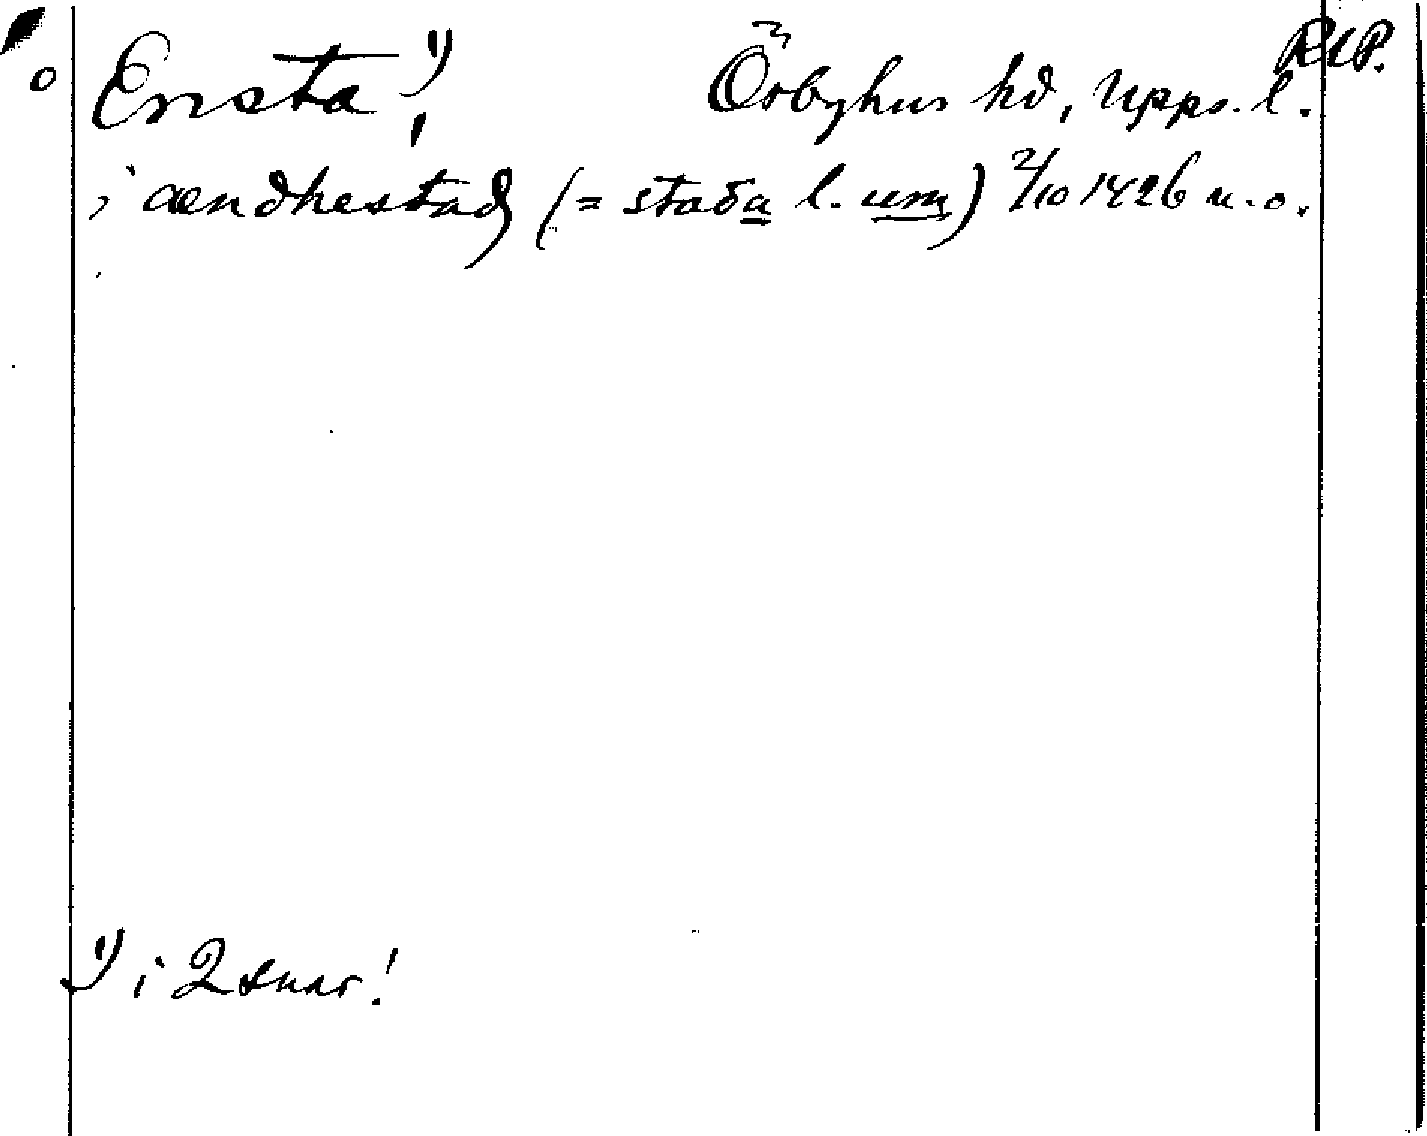 o Ensta ¹), Örbyhus hd, Upps. l. RAP.
i ændhestadh (= staða l. um) 2/10 1426 u.o.
¹) i 2 snar!